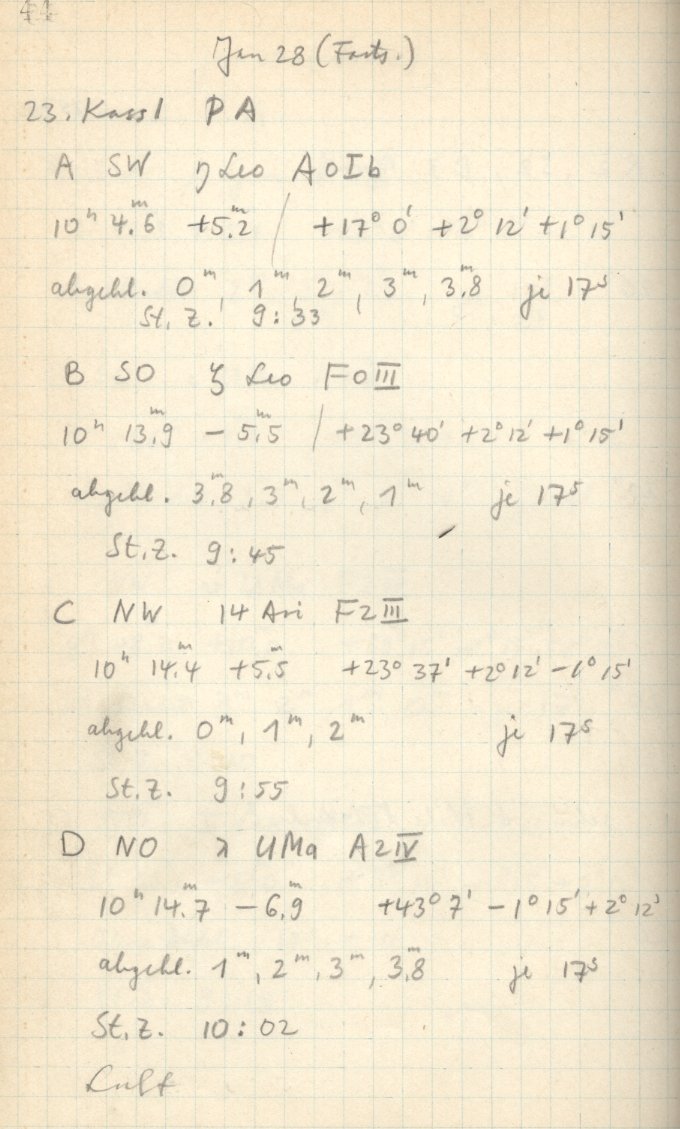 44
Jan 28 (Forts.)
23. Kass 1 PA
A SW η Leo A0Ib
10ʰ 4.ᵐ6 +5.ᵐ2 / +17° 0' +2° 12' +1° 15'
abgebl. 0ᵐ, 1ᵐ, 2ᵐ, 3ᵐ, 3.ᵐ8 je 17ˢ
St. Z. 9:33
B SO ζ Leo F0III
10ʰ 13.ᵐ9 − 5.ᵐ5 / +23° 40' +2° 12' +1° 15'
abgebl. 3.ᵐ8, 3ᵐ, 2ᵐ, 1ᵐ je 17ˢ
St. Z. 9:45
C NW 14 Ari F2III
10ʰ 14.ᵐ4 +5.ᵐ5 +23° 37' +2° 12' −1° 15'
abgebl. 0ᵐ, 1ᵐ, 2ᵐ je 17ˢ
St. Z. 9:55
D NO λ UMa A2IV
10ʰ 14.ᵐ7 − 6.ᵐ9 +43° 7' − 1° 15' + 2° 12'
abgebl. 1ᵐ, 2ᵐ, 3ᵐ, 3.ᵐ8 je 17ˢ
St. Z. 10:02
Luft